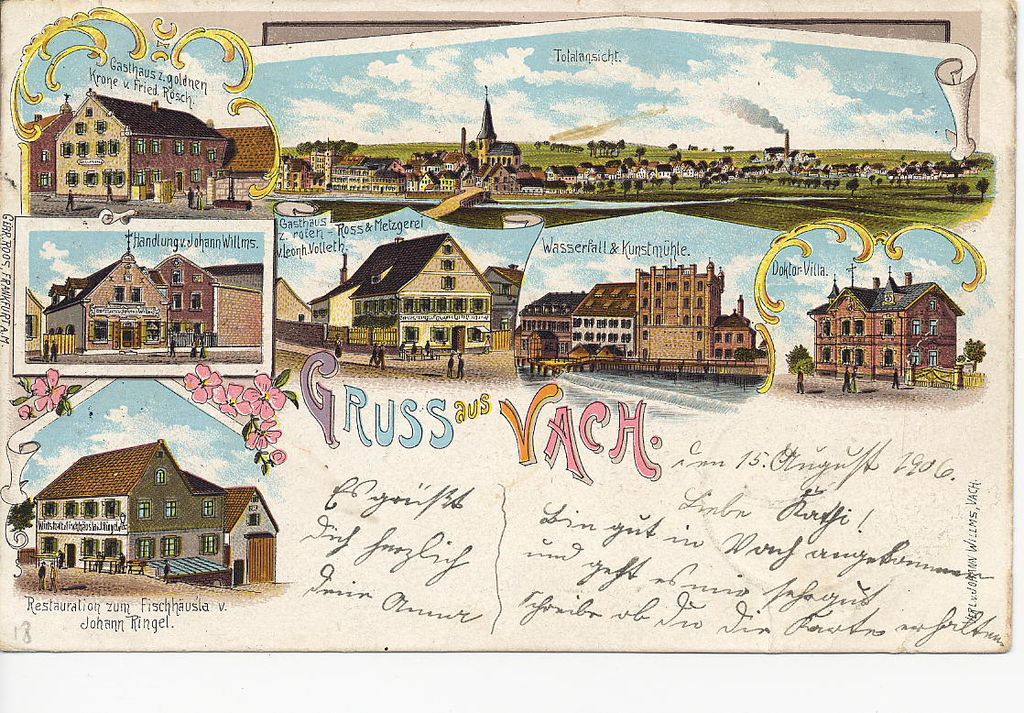 Gasthaus z. goldnen
Krone v. Fried. Rösch.
Totalansicht.
Handlung v. Johann Willms.
Gasthaus
z. roten - Ross & Metzgerei
v. Leonh. Volleth.
Wasserfall & Kunstmühle.
Doktor-Villa.
GEBR. ROOS, FRANKFURT A. M.
GRUSS aus VACH.
den 15. August 1906.
Liebe Kathi!
Bin gut in Vach angekommen
und geht es mir sehr gut
schreibe ob du die Karte erhalten
Es grüßt
dich herzlich
deine Anna
Restauration zum Fischhäusla v.
Johann Ringel.
WILLMS, VACH.
18